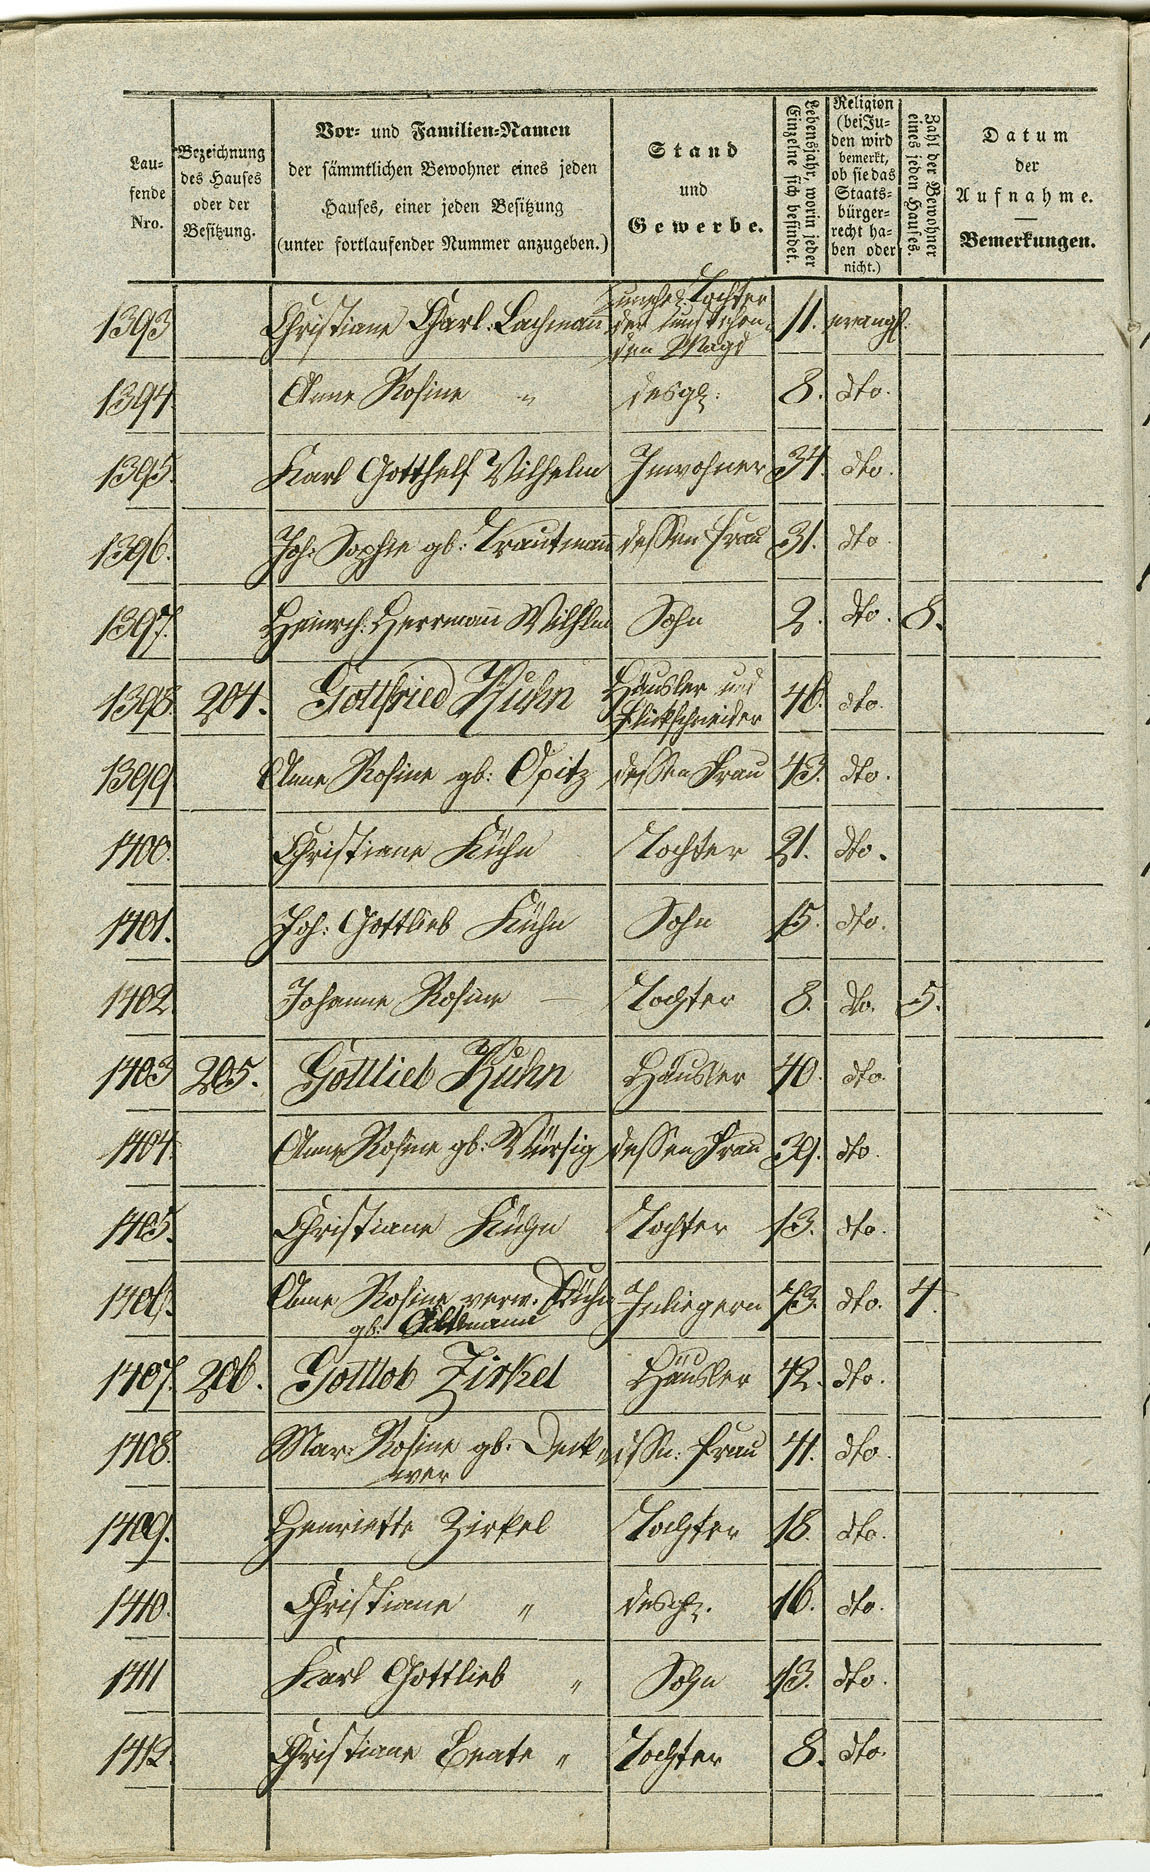 Laufende Nro.
Bezeichnung des Hauses oder der Besitzung.
Vor- und Familien-Namen
der sämmtlichen Bewohner eines jeden
Hauses, einer jeden Besitzung
(unter fortlaufender Nummer anzugeben.)
Stand
und
Gewerbe.
Lebensjahr, worin jeder Einzelne sich befindet.
Religion (bei Juden wird bemerkt, ob sie das Staatsbürgerrecht haben oder nicht.)
Zahl der Bewohner eines jeden Hauses.
Datum
der
Aufnahme.
Bemerkungen.
1393 Christiane Charl. Lachmann unehel. Tochter der den Magd 11. evangl.
1394. Anne Rosine " desgl. 8. dto.
1395. Karl Gotthelf Wilhelm Inwohner 34. dto.
1396. Joh: Sophie gb: Trautmann dessen Frau 31. dto
1397. Heinrch: Herrmann Wilhlm Sohn 2. dto. 8.
1398. 204. Gottfried Kuhn Häusler und Flickschneider 46. dto.
1399 Anne Rosine gb: Opitz dessen Frau 43. dto.
1400. Christiane Kühn Tochter 21. dto.
1401. Joh: Gottlieb Kühn Sohn 15. dto.
1402 Johanne Rosine — Tochter 8. do. 5.
1403 205. Gottlieb Kuhn Häusler 40. dto.
1404. Anne Rosine gb: Würsig dessen Frau 39. dto.
1405. Christiane Kühn Tochter 13. dto.
1406. Anne Rosine verw. Kühn Inliegern 73. dto. 4.
gb:
1407. 206. Gottlob Zirkel Häusler 42. dto.
1408. Mar: Rosine gb. Deck- dssn: Frau 41. dto.
wer
1409. Henriette Zirkel Tochter 18. dto.
1410. Christiane " desgl. 16. dto.
1411 Karl Gottlieb " Sohn 13. dto.
1412. Christiane Beate " Tochter 8. dto.